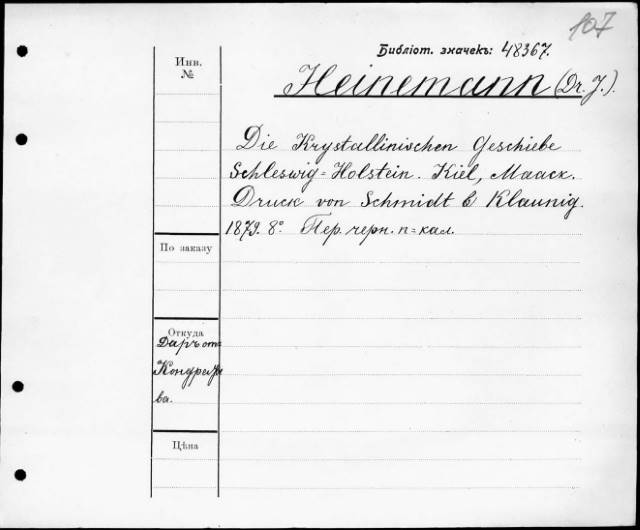 107
Библіот. значекъ: 48367.
Инв.
№
Heinemann (Dr. J.).
Die Krystallinischen Geschiebe
Schleswig=Holstein. Kiel, Maack.
Druck von Schmidt & Klaunig.
1879. 8°. Пер. черн. п=кал.
По заказу
Откуда
Даръ от=
Кондратье
ва.
Цѣна